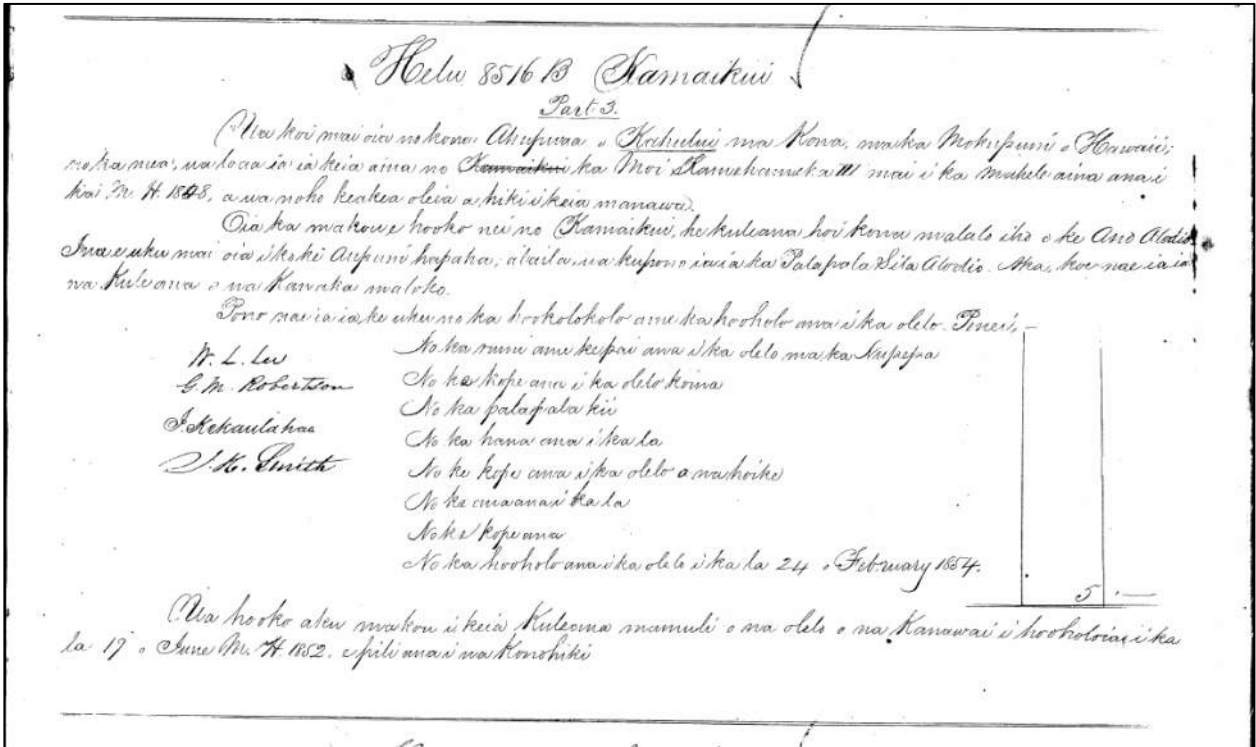 Helu 8516 B Kamaikui
Part 3.
Ua koi mai oia no kona Ahupuaa o Kahului ma Kona, ma ka Mokupuni o Hawaii;
no ka mea, ua loaa ia ia keia aina no Kamaikui ka Moi Kamehameha III mai i ka mahele aina ana i
ka M. H. 1848, a ua noho keakea oleia a hiki i keia manawa.
Oia ka makou e hooko nei no Kamaikui, he kuleana hoi kona malalo iho o ke Ano Alodio
Ina e uku mai oia i ko ke Aupuni hapaha, alaila, ua kupono ia ia ka Palapala Sila Alodio. Aka, koe nae ia ia
na Kuleana o na Kanaka maloko.
Pono nae ia ia, ke uku no ka hookolokolo ame ka hooholo ana i ka olelo. Penei, —
W. L. Lee
G. M. Robertson
J. Kekaulahao
J. H. Smith
No ka ame ke pai ana i ka olelo ma ka Nupepa
No ke kope ana i ka olelo koina
No ka palapala kii
No ka hana ana i ka la
No ke kope ana i ka olelo a na hoike
No ke ana ana i ka la
No ke kope ana
No ka hooholo ana i ka olelo i ka la 24 o February 1854.
5 . —
Ua hooko aku makou i keia Kuleana mamuli o na olelo o na Kanawai i hooholoiai i ka
la 19 o June M. H. 1852. e pili ana i na Konohiki